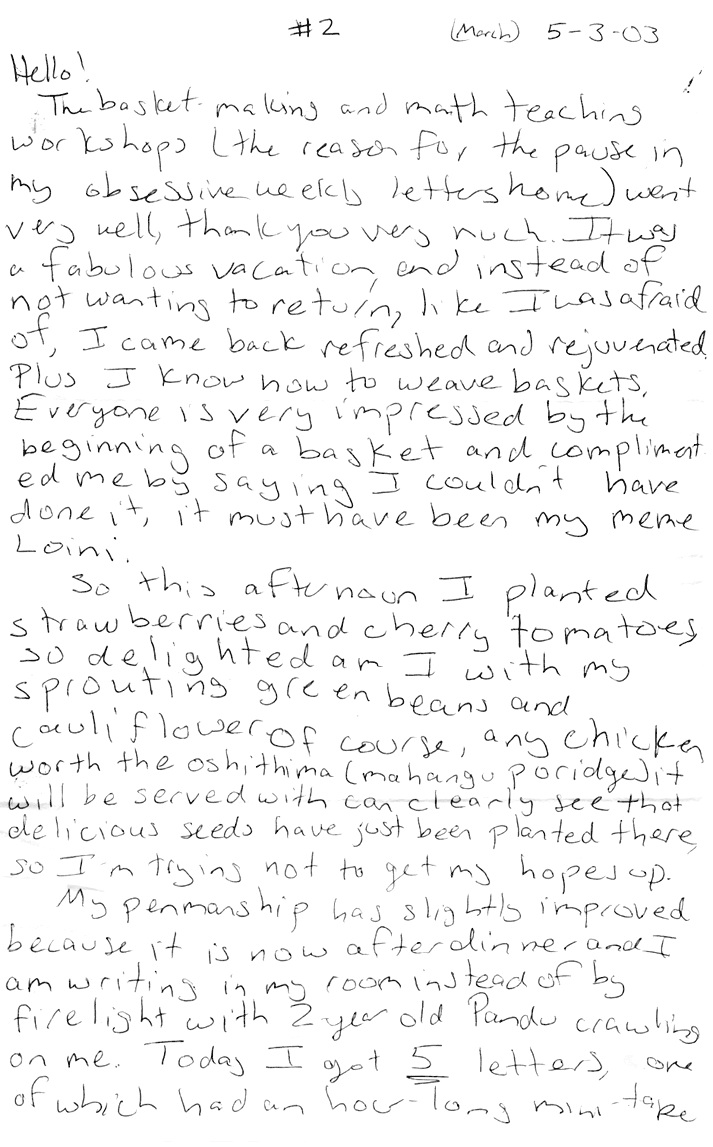 #2 (March) 5-3-03
Hello!
The basket making and math teaching
workshops (the reason for the pause in
my obsessive weekly letters home) went
very well, thank you very much. It was
a fabulous vacation, and instead of
not wanting to return, like I was afraid
of, I came back refreshed and rejuvenated.
Plus I know how to weave baskets.
Everyone is very impressed by the
beginning of a basket and compliment
ed me by saying I couldn't have
done it, it must have been my meme
Loini.
So this afternoon I planted
strawberries and cherry tomatoes,
so delighted am I with my
sprouting green beans and
cauliflower. Of course, any chicken
worth the oshithima (mahangu poridge) it
will be served with can clearly see that
delicious seeds have just been planted there,
so I'm trying not to get my hopes up.
My penmanship has slightly improved
because it is now after dinner and I
am writing in my room instead of by
firelight with 2 year old Pandu crawling
on me. Today I got 5 letters, one
of which had an hour-long mini-tape